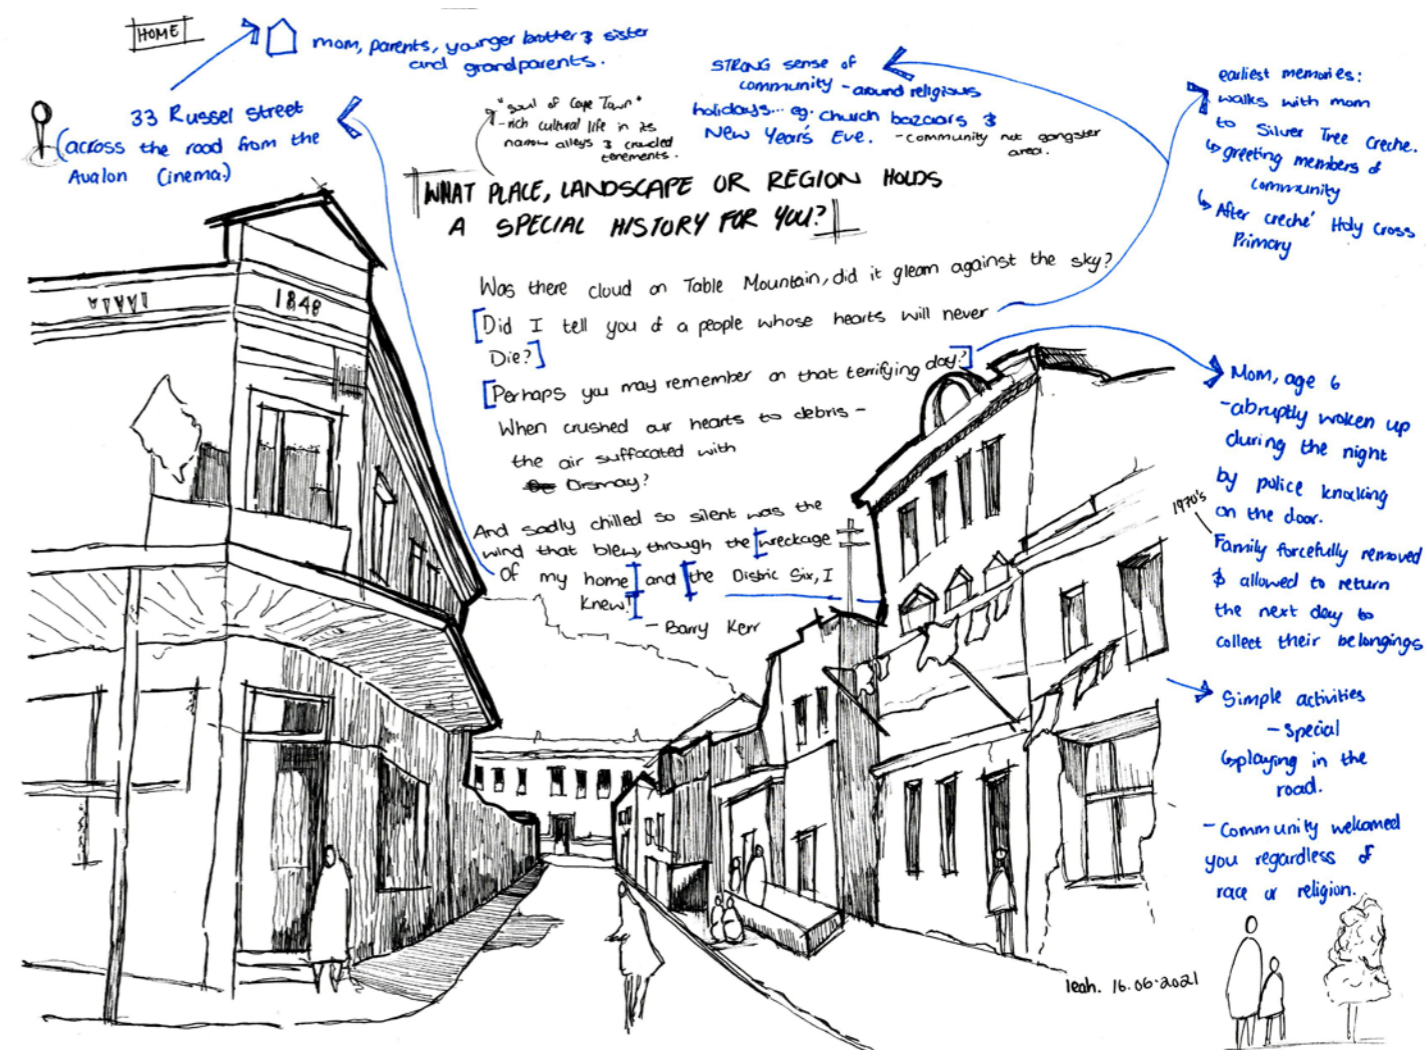 HOME
mom, parents, younger brother & sister
and grandparents.
33 Russel street
(across the road from the
Avalon Cinema.)
"soul of Cape Town"
-rich cultural life in its
narrow alleys & crowded
tenements.
STRONG sense of
community - around religious
holidays... eg. church bazaars &
New Year's Eve. - community not gangster
area.
earliest memories:
walks with mom
to Silver Tree creche.
greeting members of
community
After creché Holy Cross
Primary
WHAT PLACE, LANDSCAPE OR REGION HOLDS
A SPECIAL HISTORY FOR YOU?
Was there cloud on Table Mountain, did it gleam against the sky?
[Did I tell you of a people whose hearts will never
Die?]
[Perhaps you may remember on that terrifying day?]
When crushed our hearts to debris -
the air suffocated with
Dismay?
And sadly chilled so silent was the
wind that blew, through the [wreckage
Of my home] and [the Distric Six, I
knew!]
- Barry Kerr
1848
Mom, age 6
- abruptly woken up
during the night
by police knocking
on the door.
1970's
Family forcefully removed
& allowed to return
the next day to
collect their belongings
Simple activities
- special
playing in the
road.
- Community welcomed
you regardless of
race or religion.
leah. 16.06.2021